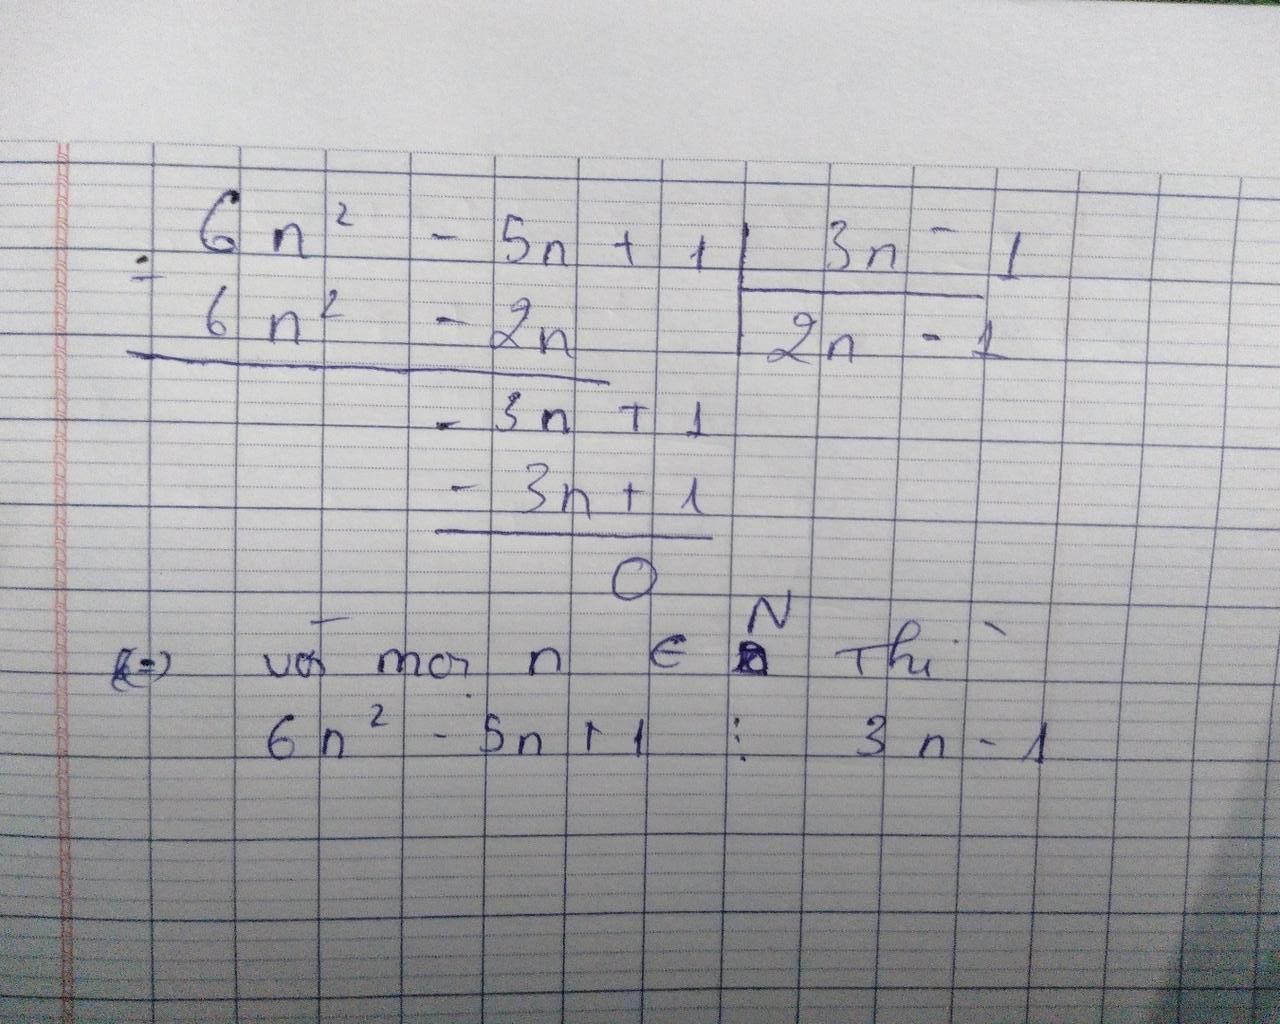 6n² - 5n + 1 | 3n - 1
-
6n² - 2n | 2n - 1
- 3n + 1
- 3n + 1
0
(=) với mọi n ∈ N Thì
6n² - 5n + 1 ⋮ 3n - 1